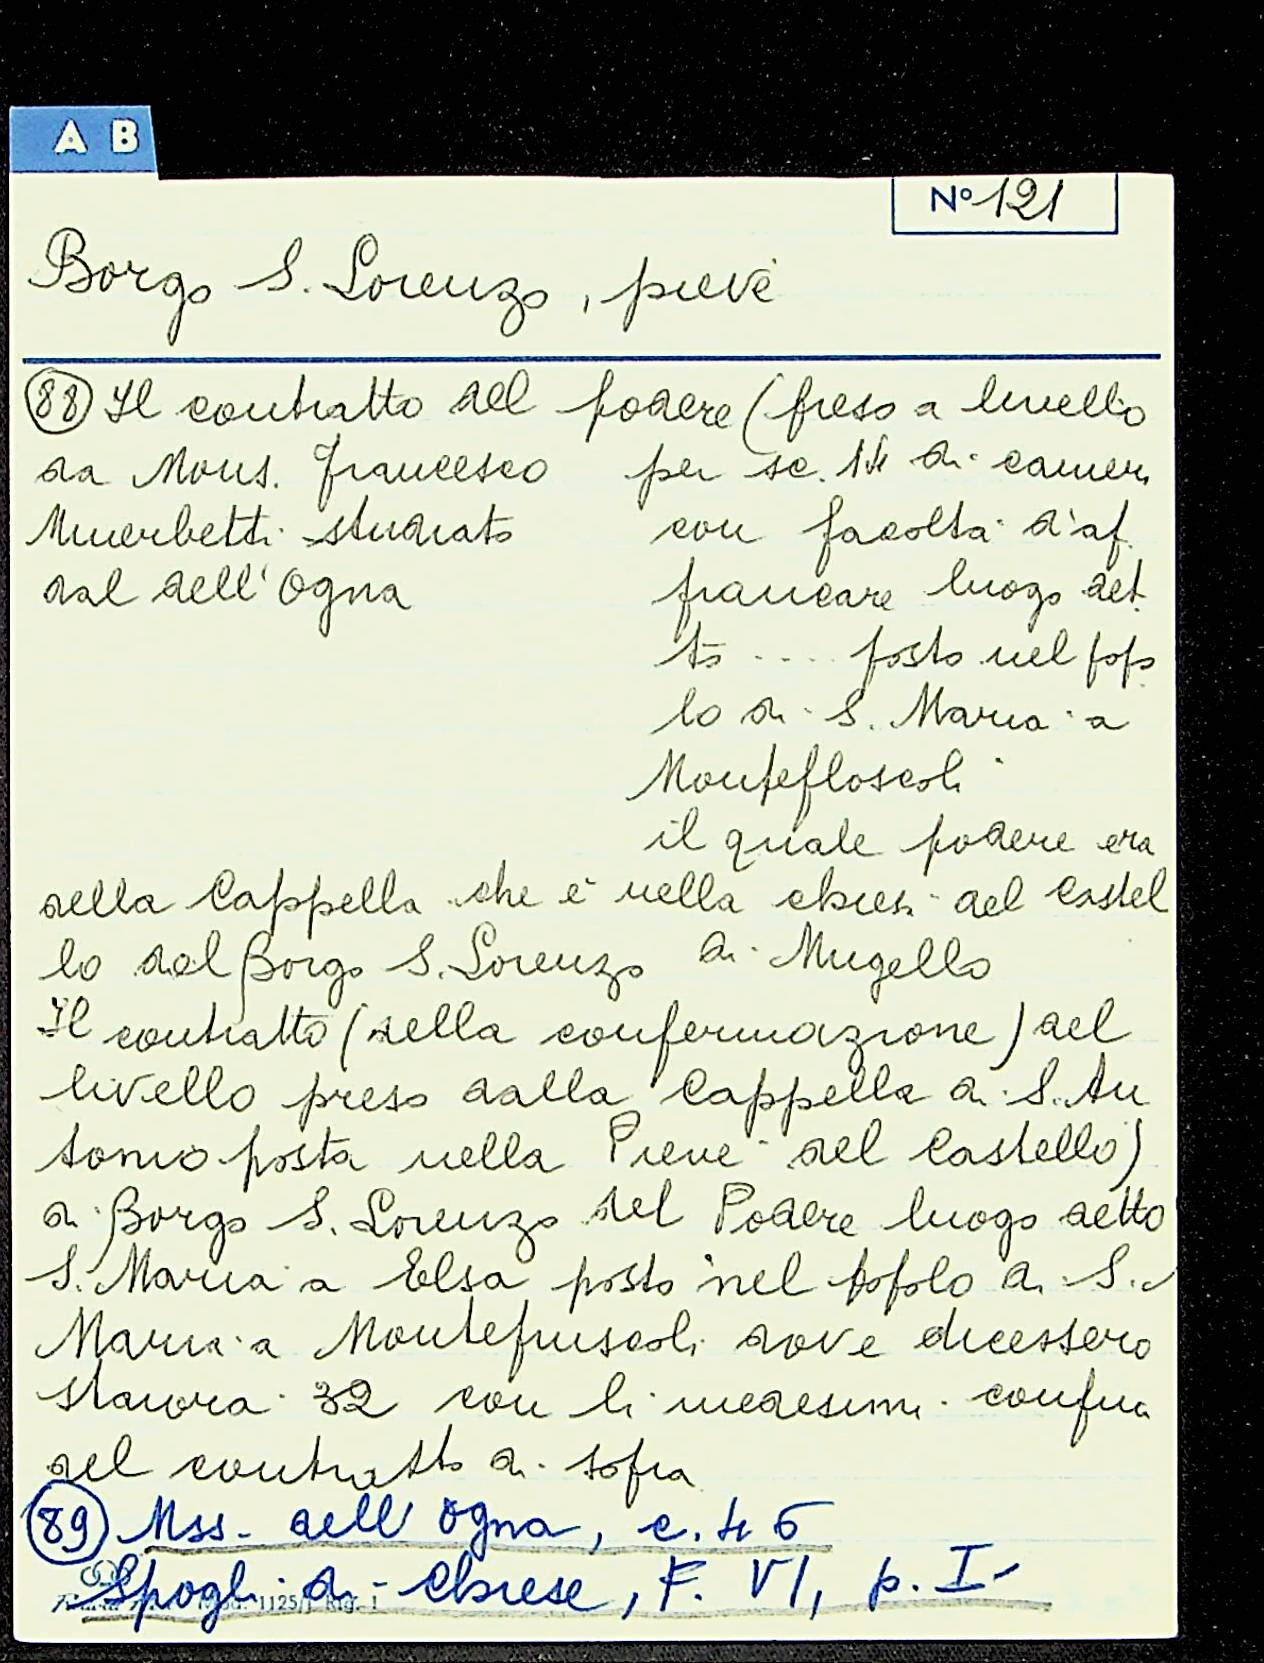 A B
Nº 121
Borgo S. Lorenzo, pieve
88 Il contratto del podere (preso a livello
da Mons. Francesco per sc. 14 di camera
Minerbetti studiato con facoltà d'af
dal dell'Ogna francare luogo det
to .... posto nel popo
lo di S. Maria a
Montefloscoli
il quale podere era
della Cappella che è nella chiesa del Castel
lo del Borgo S. Lorenzo di Mugello
Il contratto (della confermazione) del
livello preso dalla Cappella di S. An
tonio posta nella Pieve del Castello)
di Borgo S. Lorenzo del Podere luogo detto
S. Maria a Elsa posto nel popolo di S.
Maria a Montefiuscoli dove dicessero
staiora 32 con li medesimi confini
del contratto di sopra
89 Mss. dell'Ogna, c. 46
Spogli di Chiese, F. VI, p. I
1125/1 Rig. 1